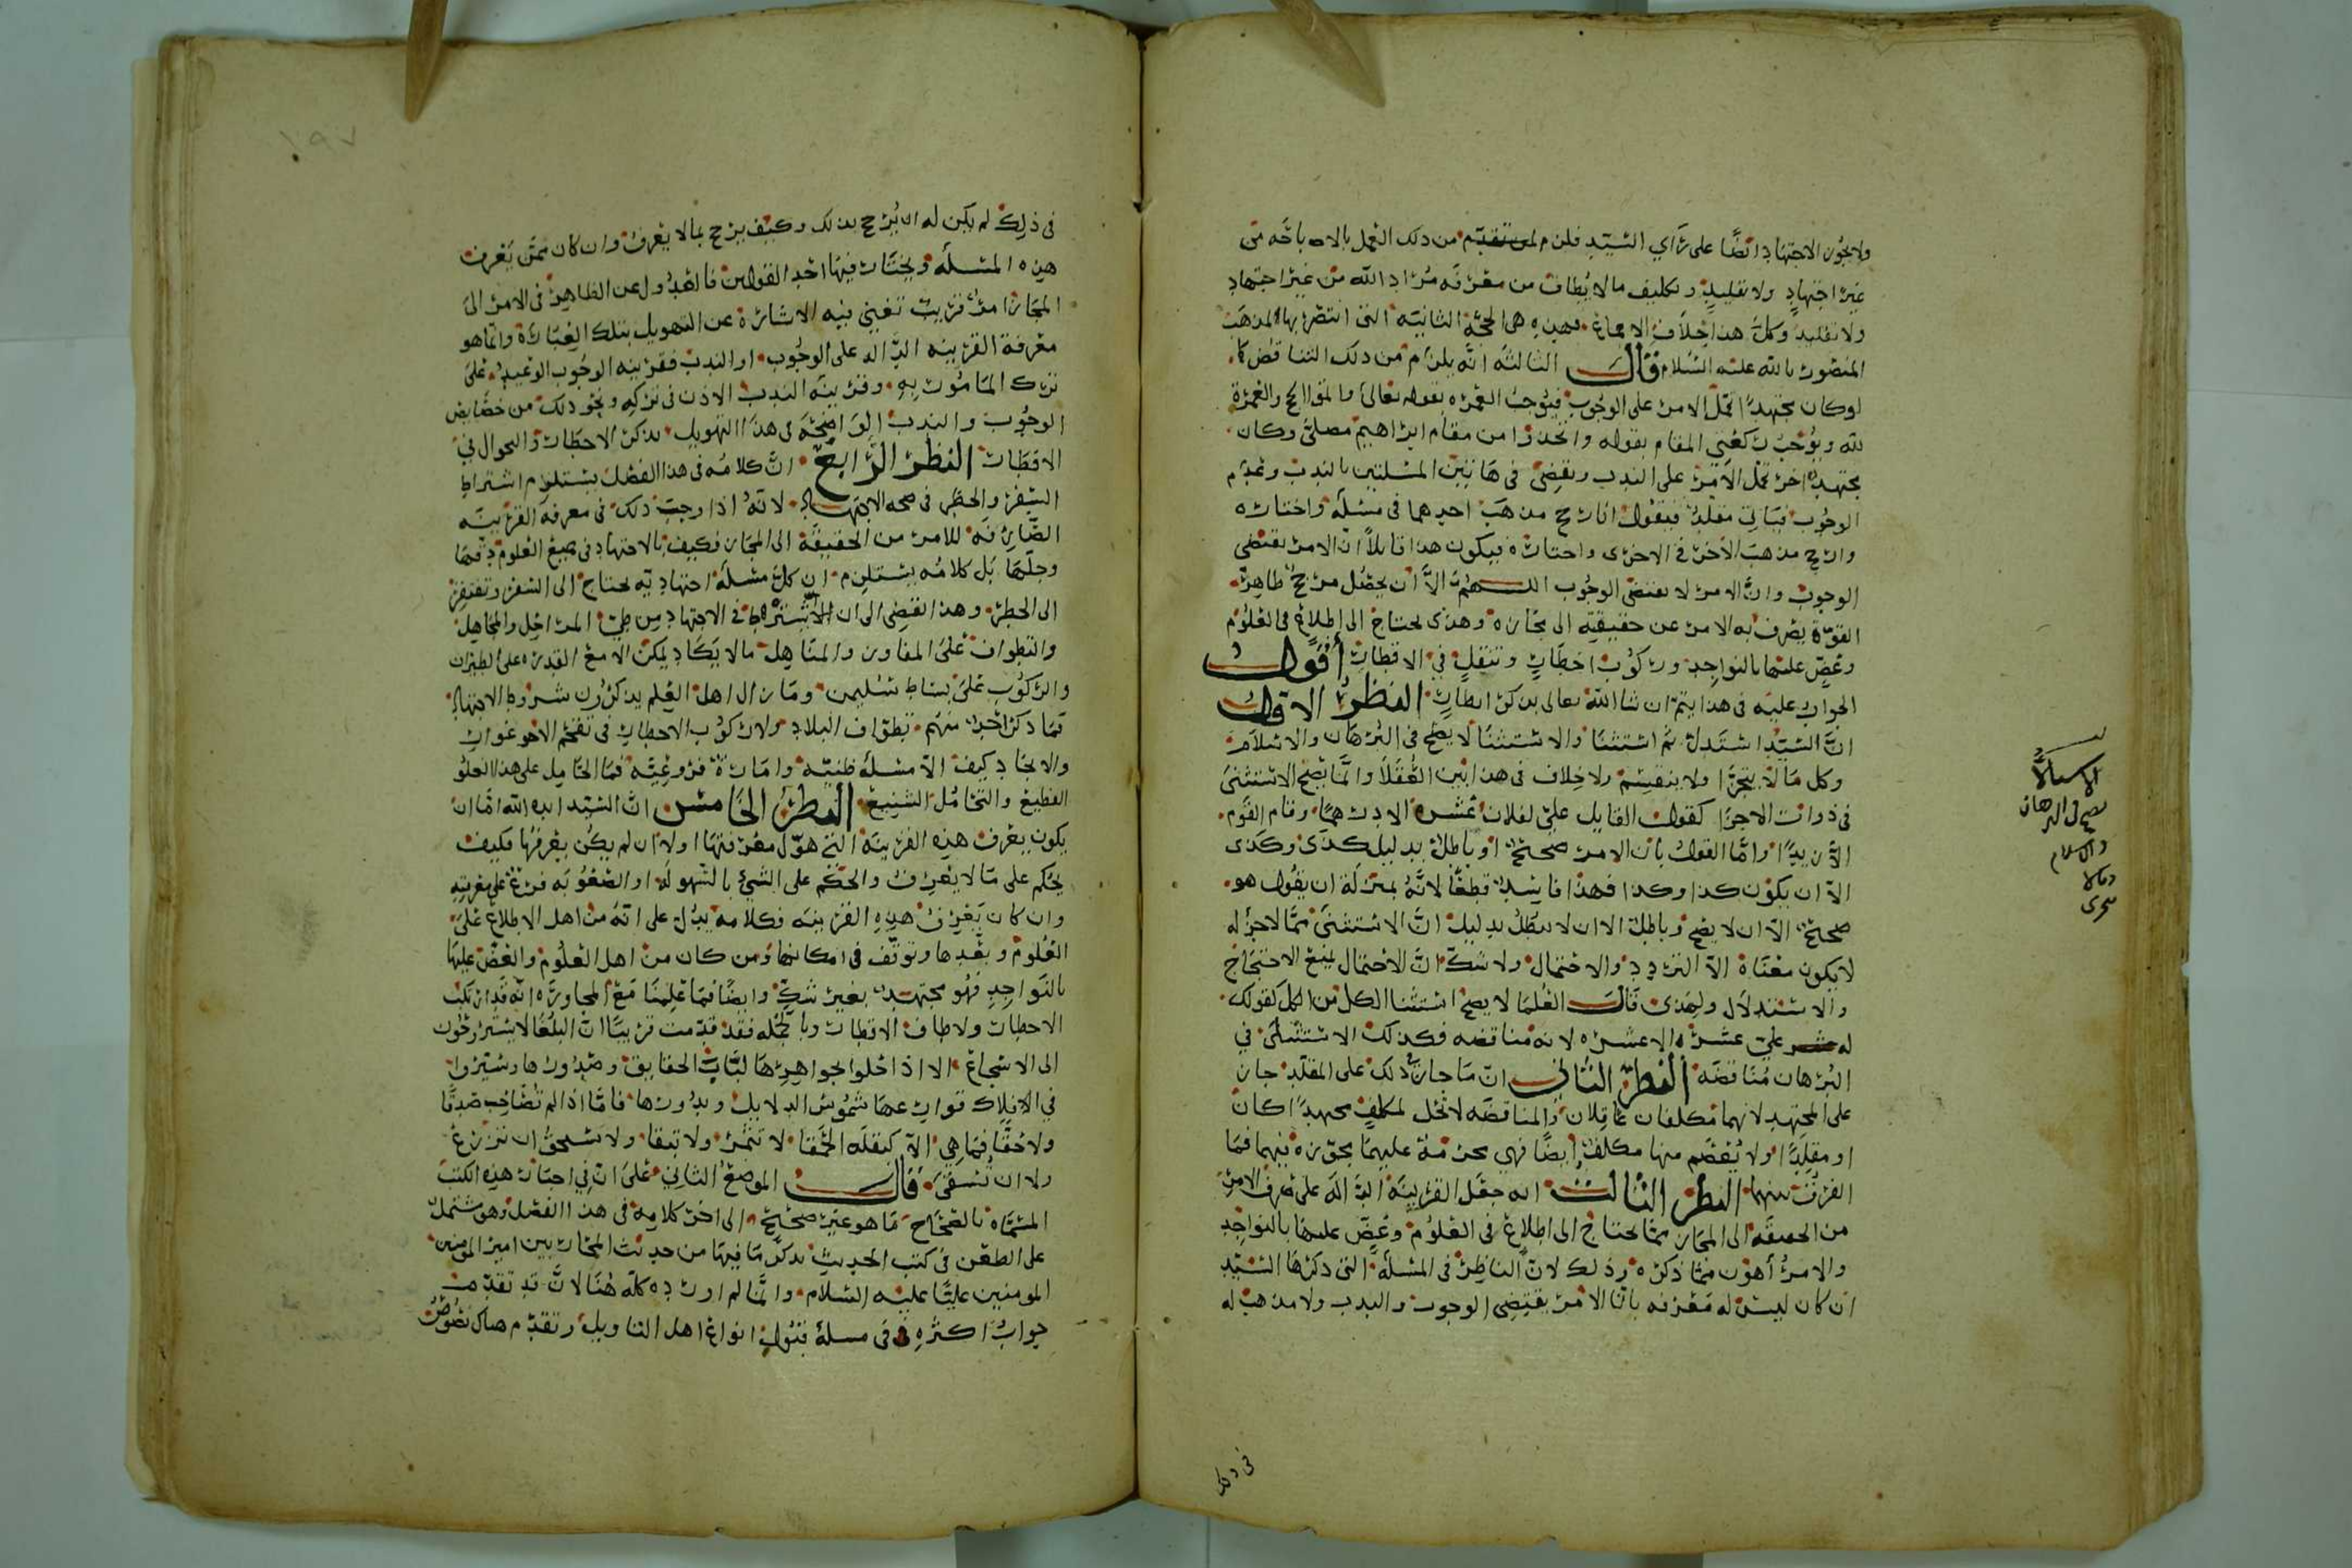 ولا يجوز الاجتهاد ايضًا على رأي السّيّد فلزم من ذلك العمل بالاباحه من
غير اجتهادٍ ولا تقليدٍ وتكليف ما لا يُطاق من معرفه مُراد الله من غير اجتهاد
ولا تقليد وكلّ هذا خِلاف الاجماع فهذه هي الحجّة الثانية التي انتصر بها لمذهب
المنصور بالله عليه السّلام قال الثالثه انّه يلزم من ذلك التناقض كما
لو كان مجتهدٌ يحمل الامر على الوجُوب فيُوجبُ العمره بقوله تعالى واتموا الحج والعمرة
لله ويُوجب ركعتي المقام بقوله واتخذوا من مقام ابراهيم مصلّى وكان
مجتهدٌ اخر يحمل الامر على الندب ويقضي في هاتين المسئلتين بالندب وعدم
الوجُوب فياتي مقلّدٌ فيقول انا ارجّح مذهب احدهما في مسئلة واختاره
وارجّح مذهب الآخر في الاخرى واختاره فيكون هذا قايلاً انّ الامر يقتضي
الوجوب وانّ الامر لا يقتضي الوجُوب اللهُمّ الاّ ان يحصُل مرجّحٌ ظاهر
القوّة يصرف به الامر عن حقيقته الى مجازه وهذى يحتاج الى اطلاع في العلوم
وعضّ عليها بالنواجد وركوب اخطارٍ وتنقلٍ في الاقطار أقولُ
الجواب عليه في هذا يتمّ ان شا الله تعالى بذكر انظارٍ النظرُ الاوّلُ
انّ السّيّد استدلّ ثم استثنا والاستثنا لا يصحّ في البرهان والاسلام
وكل ما لا يتجزّا ولا ينقسم ولا خِلاف في هذا بين العُقلا وانّما يصحّ الاستثنى
في ذوات الاجزا كقول القايل عليّ لفلان عشره الا درهمًا وقام القوم
الاّ زيدًا وامّا القول بان الامر صحيحٌ او باطلٌ بدليل كذى وكذى
الاّ ان يكون كذا وكذا فهذا فاسدٌ قطعًا لانّه بمنزلة ان يقول هو
صحيحٌ الاّ ان لا يصحّ وباطلٌ الا ان لا يبطُلُ بدليل انّ الاستثنى ممّا لا جزء له
لا يكون معناه الاّ التردد والاحتمال ولا شكّ انّ الاحتمال يمنع الاحتجاج
والاستدلال ولهذى قال العُلما لا يصحّ استثنا الكل من الكل كقولك
له عليّ عشره الا عشره لانه مناقضه فكذلك الاستثنى في
البُرهان مُناقضه النظر الثاني انّ ما جاز ذلك على المقلّد جاز
على المجتهد لانهما مكلفان عاقلان والمناقضه لا تحل لمكلفٍ مجتهدًا كان
او مقلدًا ولا يُعصم منها مكلّف ايضًا فهي محرّمة عليهما مجوّزه فيهما فما
الفرق بينهما النظر الثالث انه جعل القرينة الدّالّة على صرف الامر
من الحقيقه الى المجاز ممّا يحتاج الى اطلاع في العلوم وعضّ عليها بالنواجد
والامرُ أهون ممّا ذكره وذلك لانّ الناظر في المسئلة التي ذكرها السّيّد
ان كان ليس له معرفه بانّ الامر يقتضي الوجوب والندب ولا مذهب له
الاستثنا لا
يصح في البرهان
والاسلام
وما لا
يتجزى
في ذلك
في ذلك لم يكن له ان يُرجّح بذلك وكيف يرجح بما لا يعرف وان كان ممّن يعرف
هذه المسئلة ويختار فيها احد القولين فالعدُول عن الظاهر في الامر الى
المجاز امرٌ قريب تغني فيه الاشارة عن التهويل بتلك العبارة وانّما هو
معرفة القرينه الدّاله على الوجُوب او الندب فقرينه الوجُوب الوعيد على
ترك المامُور به وقرينة الندب الاذن في تركه ونحو ذلك من خصايص
الوجُوب والندب الواضحة في هذا التهويل بذكر الاخطار والتجوال في
الاقطار النظر الرّابع انّ كلامُه في هذا الفصل يستلزم اشتراط
السّفر والخطر في صحه الاجتهاد لانّه اذا وجب ذلك في معرفة القرينه
الصّارفه للامر من الحقيقة الى المجاز فكيف بالاجتهاد في جميع العلوم دقّها
وجلّها بل كلامُه يستلزم ان كلّ مسئلة اجتهاديّه تحتاج الى السفر وتفتقر
الى الخطر وهذا يقضي الى ان في الاجتهاد من طيّ المراحل والمجاهل
والتطواف على المفاوز والمناهل ما لا يكاد يمكن الا مع القدره على الطيران
والركوب على بساط سُليمن وما زال اهل العِلم يذكرون شروط الاجتهاد
فما ذكر احدٌ منهم تطواف البلاد ولا ركوب الاخطار في تقحم الاغوار
والانجاد كيف الاّ مسئلة ظنيّه وامارة فروعيّه فما الحامل على هذا الغلو
الفظيع والتحامُل الشنيع النظرُ الخامس انّ السّيّد ايده الله امّا ان
يكون يعرف هذه القرينة التي هوّل معرفتها او لا ان لم يكن يعرفها فكيف
يحكم على ما لا يعرف والحكم على الشيء بالسّهوله او الصّعُوبه فرعٌ على معرفته
وان كان يعرف هذه القرينه فكلامه يدُل على انّه من اهل الاطلاع على
العُلوم وبُعدها وتوقف في امكانها ومن كان من اهل العُلوم والعضّ عليها
بالنواجد فهو مجتهدٌ بغير شكّ وايضًا فما علِمنا مع المجاوره انه قد ارتكب
الاخطار ولا طاف الاقطار وبالجمله فقد قدّمت قريبًا انّ البُلغا لا يستروحُون
الى الاسجاع الا اذا اخلوا بجواهرها لبّات الحقايق وصدُورها وسيّروا
في افلاك شموس الدلايل وبدُورها فامّا اذا لم تُصاحب صدقًا
ولا حقًّا فما هي الاّ كبقلة الحمقا لا تثمر ولا تبقا ولا تستحقّ ان تزرع
ولا ان تُسقى قال الموضع الثاني على انّ في اخبار هذه الكتب
المسمّاه بالصّحاح ما هو غير صحيح الى اخر كلامه في هذا الفصل وهو يشتمل
على الطعن في كتب الحديث بذكر ما فيها من حديث المحارّبين امير المومنين
المومنين عليًّا عليه السّلام وانّما لم اورده كلّه هُنا لانّ قد تقدّمت
جوابُ اكثره في مسلة قبُول انواع اهل التاويل وتقدّم هناك نصُوص